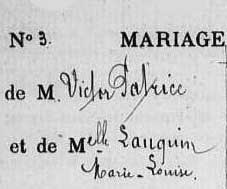 Nº 3. MARIAGE
de M. Victor Patrice
et de Melle Lauquin
Marie-Louise.